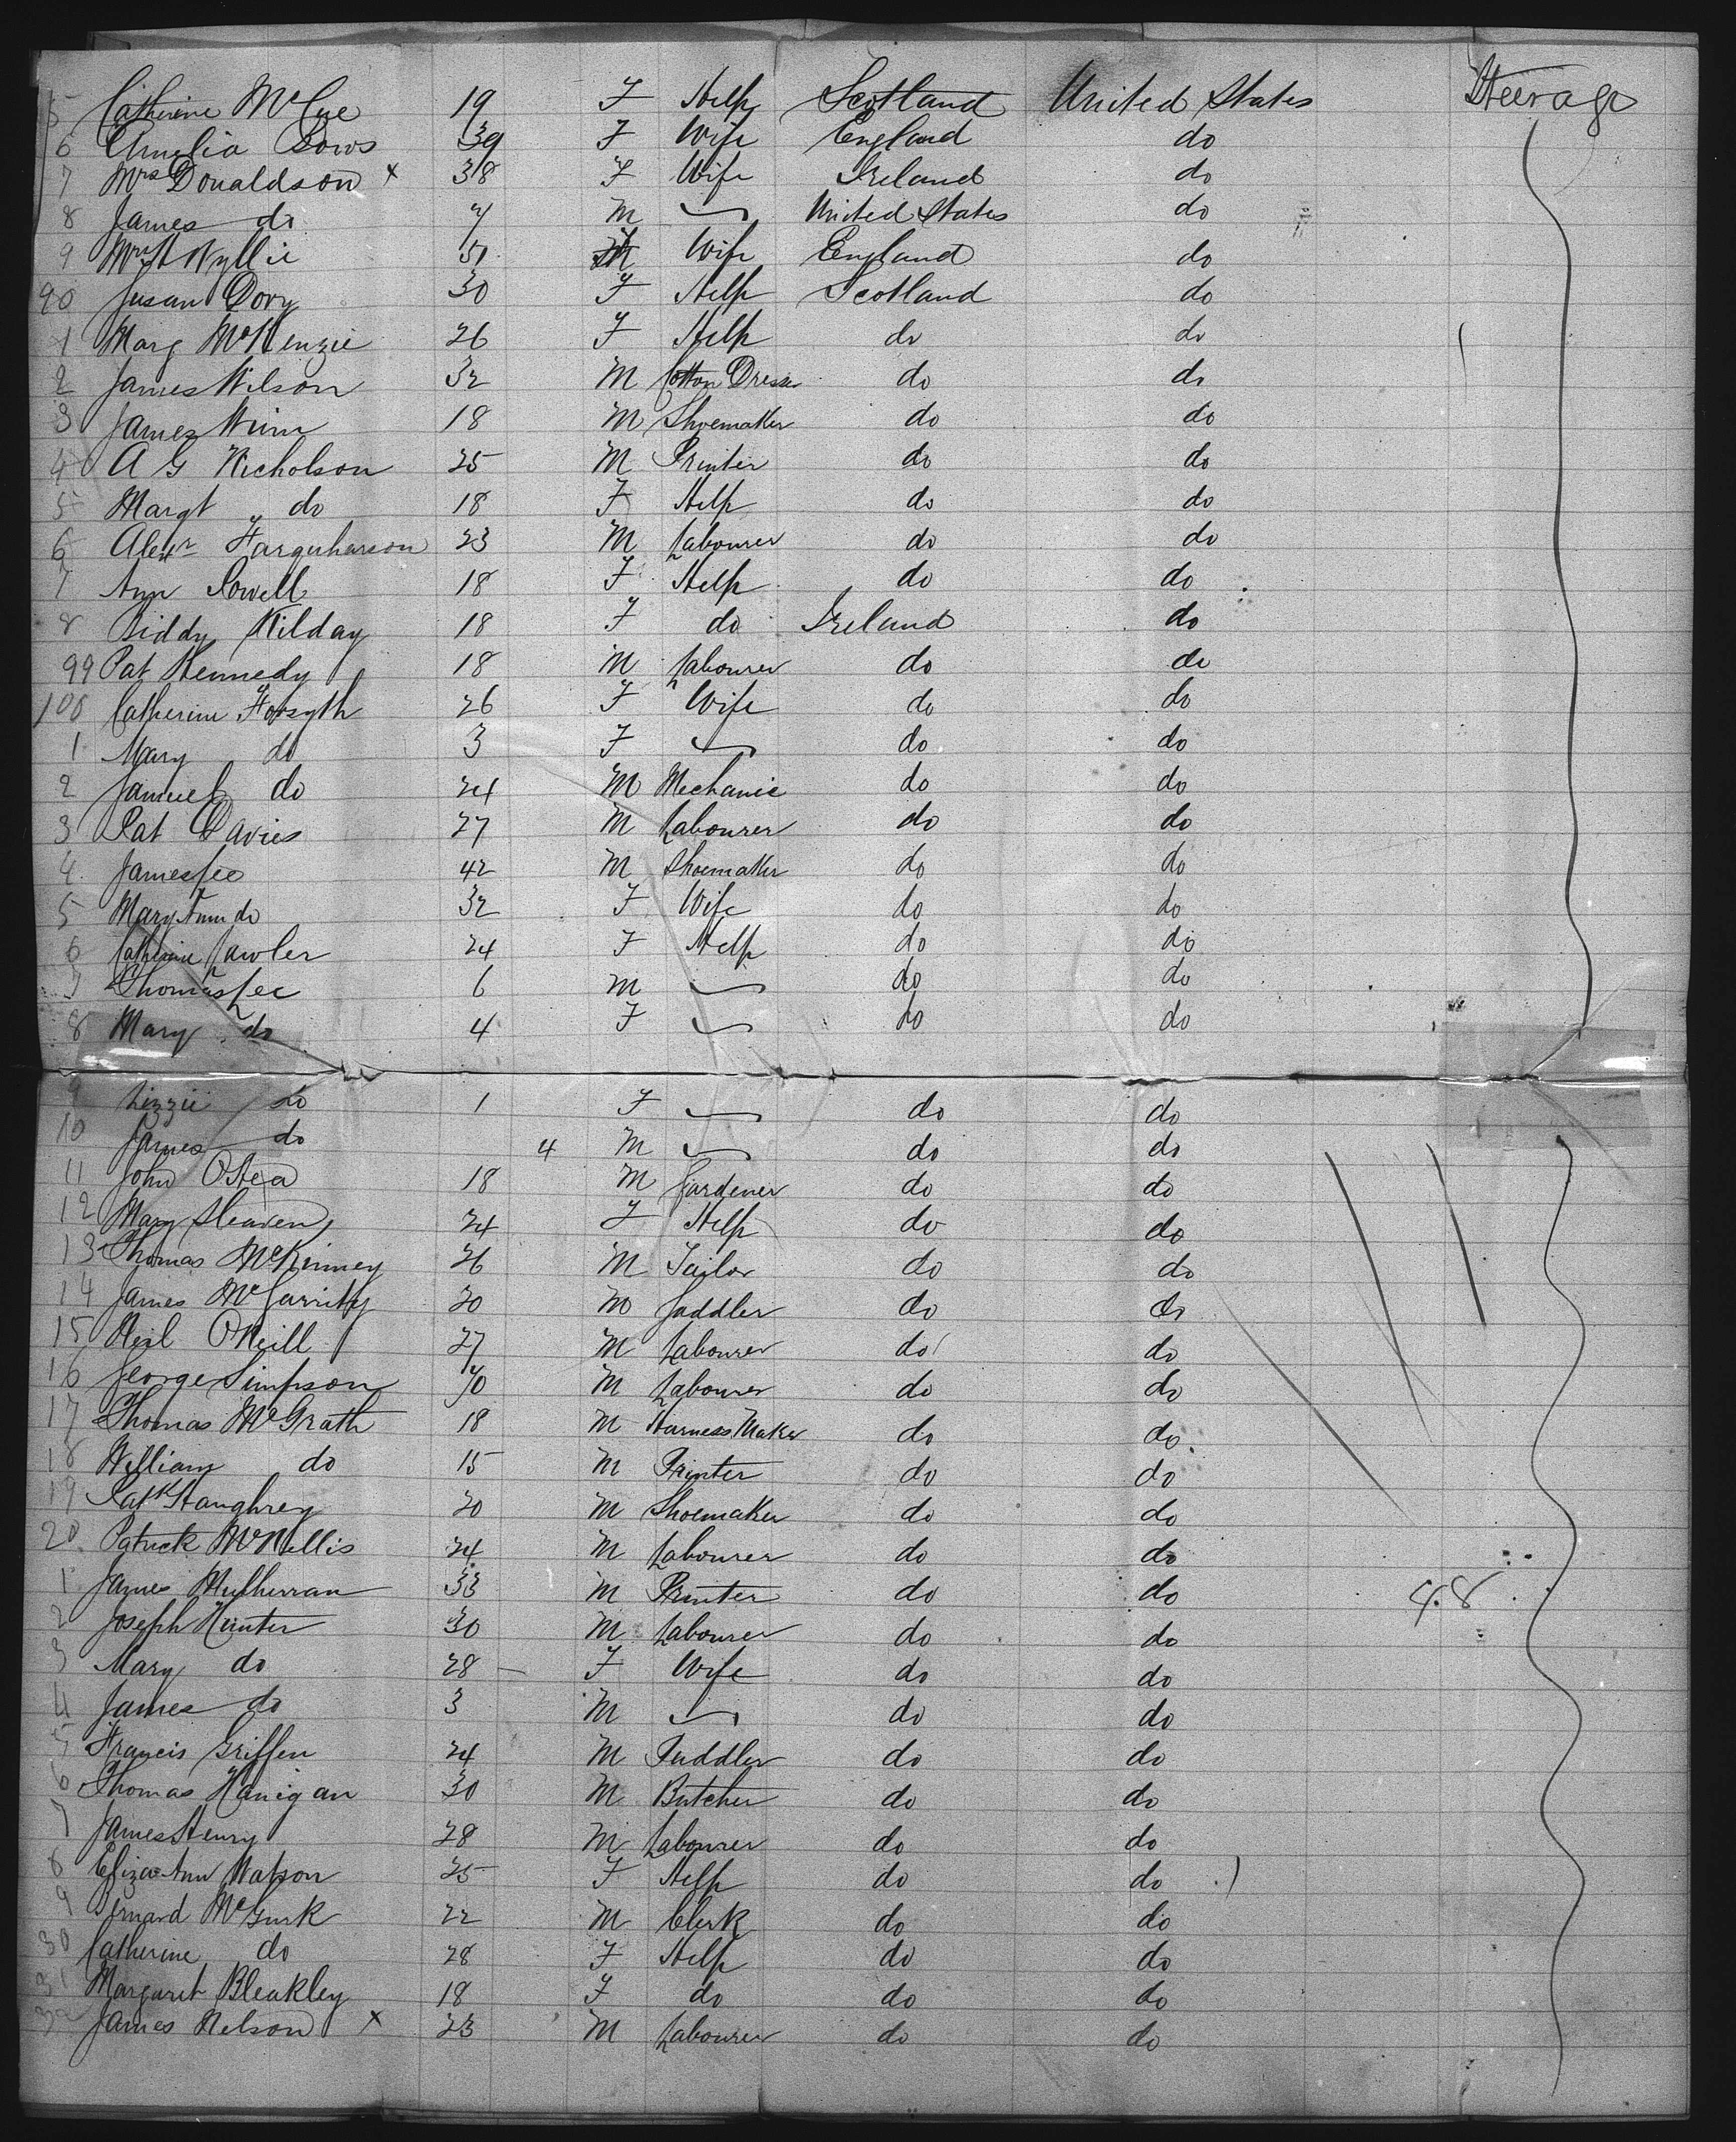 5 Catherine McCue 19 F Help Scotland United States Steerage
6 Amelia Bows 39 F Wife England do
7 Mrs Donaldson x 38 F Wife Ireland do
8 James do 7 M United States do
9 Wyllie 51 Wife England do
90 Susan Dory 30 F Help Scotland do
1 Marg McKenzie 26 F Help do do
2 James Wilson 32 M Cotton Dresser do do
3 James Winn 18 M Shoemaker do do
4 A G Nicholson 25 M Printer do do
5 Margt do 18 F Help do do
6 Alexr Farquharson 23 M Labourer do do
7 Ann Powell 18 F Help do do
8 Biddy Kilday 18 F do Ireland do
99 Pat Kennedy 18 M Labourer do do
100 Catherine Forsyth 26 F Wife do do
1 Mary do 3 F do do
2 Samuel do 24 M Mechanic do do
3 Pat Davies 27 M Labourer do do
4 James Lee 42 M Shoemaker do do
5 Mary Ann do 32 F Wife do do
6 Catherine Lawler 24 F Help do do
7 Thomas Lee 6 M do do
8 Mary do 4 F do do
9 Lizzie do 1 F do do
10 James do 4 M do do
11 John OHea 18 M Gardener do do
12 Mary Sleaven 24 F Help do do
13 Thomas McKinney 26 M Tailor do do
14 James McGarrity 20 M Saddler do do
15 Neil ONeill 27 M Labourer do do
16 George Simpson 40 M Labourer do do
17 Thomas McGrath 18 M Harness Maker do do
18 William do 15 M Printer do do
19 Patk Haughrey 20 M Shoemaker do do
20 Patrick McNellis 24 M Labourer do do
1 James Mulherran 33 M Printer do do 48
2 Joseph Hunter 30 M Labourer do do
3 Mary do 28 F Wife do do
4 James do 3 M do do
5 Francis Griffen 24 M Puddler do do
6 Thomas Hanigan 30 M Butcher do do
7 James Henry 28 M Labourer do do
8 Eliza Ann Watson 25 F Help do do
9 Bernard McGurk 22 M Clerk do do
30 Catherine do 28 F Help do do
31 Margaret Bleakley 18 F do do do
32 James Nelson x 23 M Labourer do do